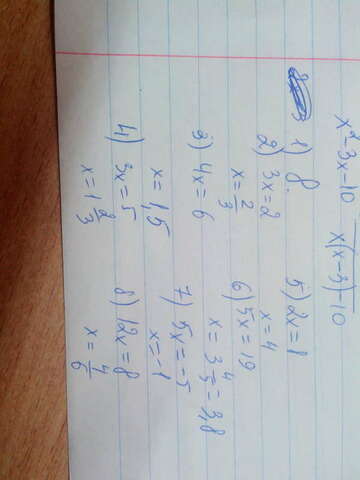 x² - 3x - 10   x(x-3) - 10
1)
2) 3x = 2
x = 2/3
3) 4x = 6
x = 1,5
4) 3x = 5
x = 1 2/3
5) 2x = 8
x = 4
6) 5x = 19
x = 3 4/5 = 3,8
7) 5x = -5
x = -1
8) 12x = 8
x = 4/6